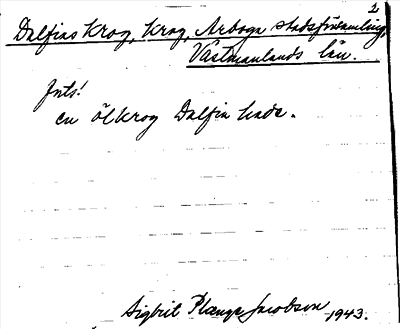 2
Dalfins Krog, Krog, Arboga stadsförsamling,
Västmanlands län.
Jnts!
en ölkrog Dalfin hade.
Sigbrit Plænge Jacobson 1943.